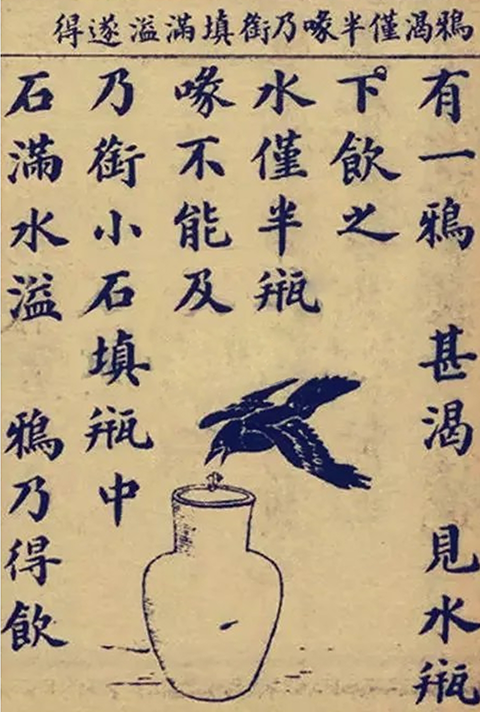 鴉渴僅半喙乃銜填滿溢遂得
有一鴉 甚渴 見水瓶
下飲之
水僅半瓶
喙不能及
乃銜小石填瓶中
石滿水溢 鴉乃得飲